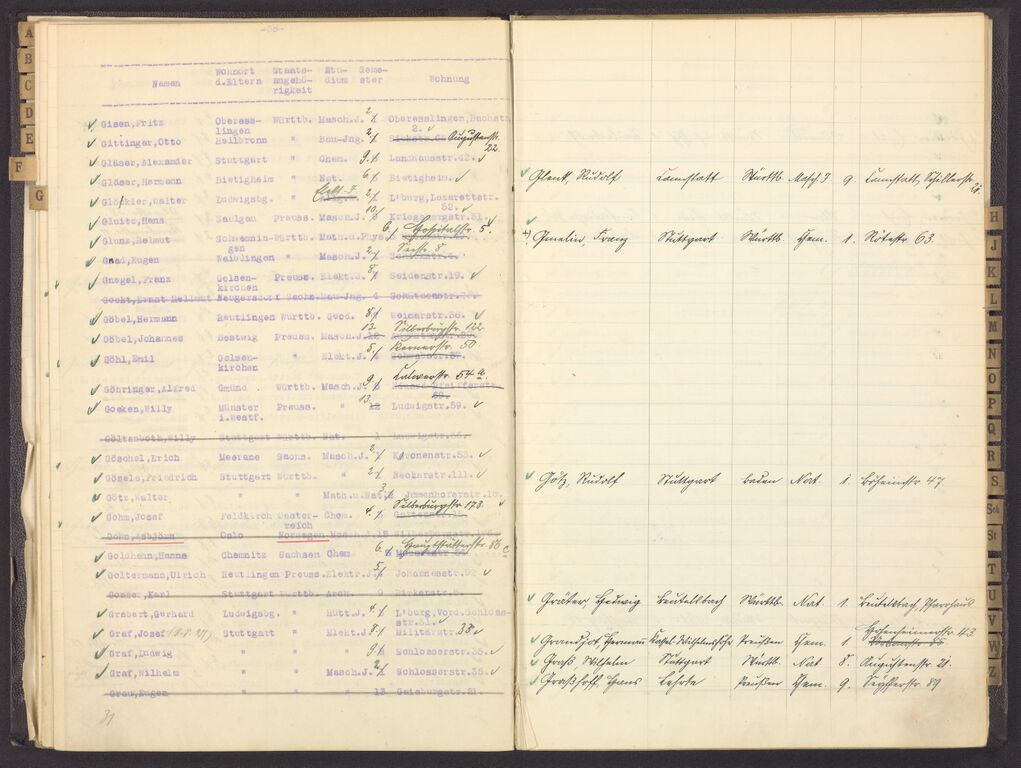 A
B
C
D
E
F
G
Namen Wohnort d.Eltern Staats-angehö-rigkeit Stu-dium Seme-ster Wohnung
Gisen,Fritz Oberess-lingen Württb. Masch.J. Oberesslingen,Bachstr.
2.
Gittinger,Otto Heilbronn " Bau-Jng. Augustenstr. 22.
Gläser,Alexander Stuttgart " Chem. 9. Landhausstr.42.
Gläser,Hermann Bietigheim " Nat. 6. Bietigheim.
Glöckler,Walter Ludwigsbg. " Elekt. J. 2. L'burg,Lazarettstr.
52.
Hans Saulgau Preuss. Masch.J. Kriegsbergstr.31.
Gluns,Helmut Schwennin-gen Württb. Math.u.Phys. 6. Hospitalstr. 5.
Gnad,Eugen Waiblingen " Masch.J. 2. Seestr. 8
Gnegel,Franz Gelsen-kirchen Preuss. Elekt.J. 8. Seidenstr.19.
Helmut Neugersdorf Sachs. Bau-Jng. 4
Göbel,Hermann Reutlingen Württb. Geod. 8. Weimarstr.38.
Göbel,Johannes Bestwig Preuss. Masch.J. 13. Silberburgstr. 122
Göhl,Emil Gelsen-kirchen " Elekt.J. 5. Bernerstr. 50
Göhringer,Alfred Gmünd . Württb. Masch.J. 9. Calwerstr. 54 a.
Goeken,Willy Münster i.Westf. Preuss. " 13. Ludwigstr.59.
Göltenboth,Willy Stuttgart Württb. Nat. 1 Ludwigstr.
Göschel,Erich Meerane Sachs. Masch.J. 2. Kronenstr.53.
Gösele,Friedrich Stuttgart Württb. " 2. Neckarstr.111.
Götz,Walter " " Math.u.Nat. 3. Immenhoferstr.18.
Gohm,Josef Feldkirch Oester-reich Chem. 4. Silberburgstr 173.
Asbjörn Oslo Norwegen Masch.J.
Goldhahn,Hanns Chemnitz Sachsen Chem 6.
Goltermann,Ulrich Reutlingen Preuss. Elektr.J. 5. Johannesstr.
Karl Stuttgart Württb. Arch. 9 Birkenstr.
Grabert,Gerhard Ludwigsbg. " Hütt.J. 4. L'burg,Vord.Schloss-
str.31.
Graf,Josef Stuttgart " Elekt.J. 8. Militärstr. 38
Graf,Ludwig " " " 9. Schlosserstr.35.
Graf,Wilhelm " " Masch.J. 2. Schlosserstr.35.
Grau,Eugen " " " 13 Gaisburgstr.21.
31
Glenk, Rudolf Cannstatt Württb Masch J 9 Cannstatt, Schillerstr
Gmelin, Franz Stuttgart Württb Chem. 1. Rötestr 63.
Götz, Rudolf Stuttgart Baden Nat 1. Böheimstr 47.
Gräter, Hedwig Beutelsbach Württb. Nat 1 Beutelsbach, Pfarrhaus
Grandjot, Herman Kassel-Wilhelmshöhe Preußen Chem. 1 Hohenheimerstr. 43
Graß, Wilhelm Stuttgart Württb. Nat 8. Augustenstr 21.
Graßhoff, Hans Lehrte Preußen Chem. 9. Seyfferstr. 89
H
J
K
L
M
N
O
P
Q
R
S
Sch
St
T
U
V
W
Z